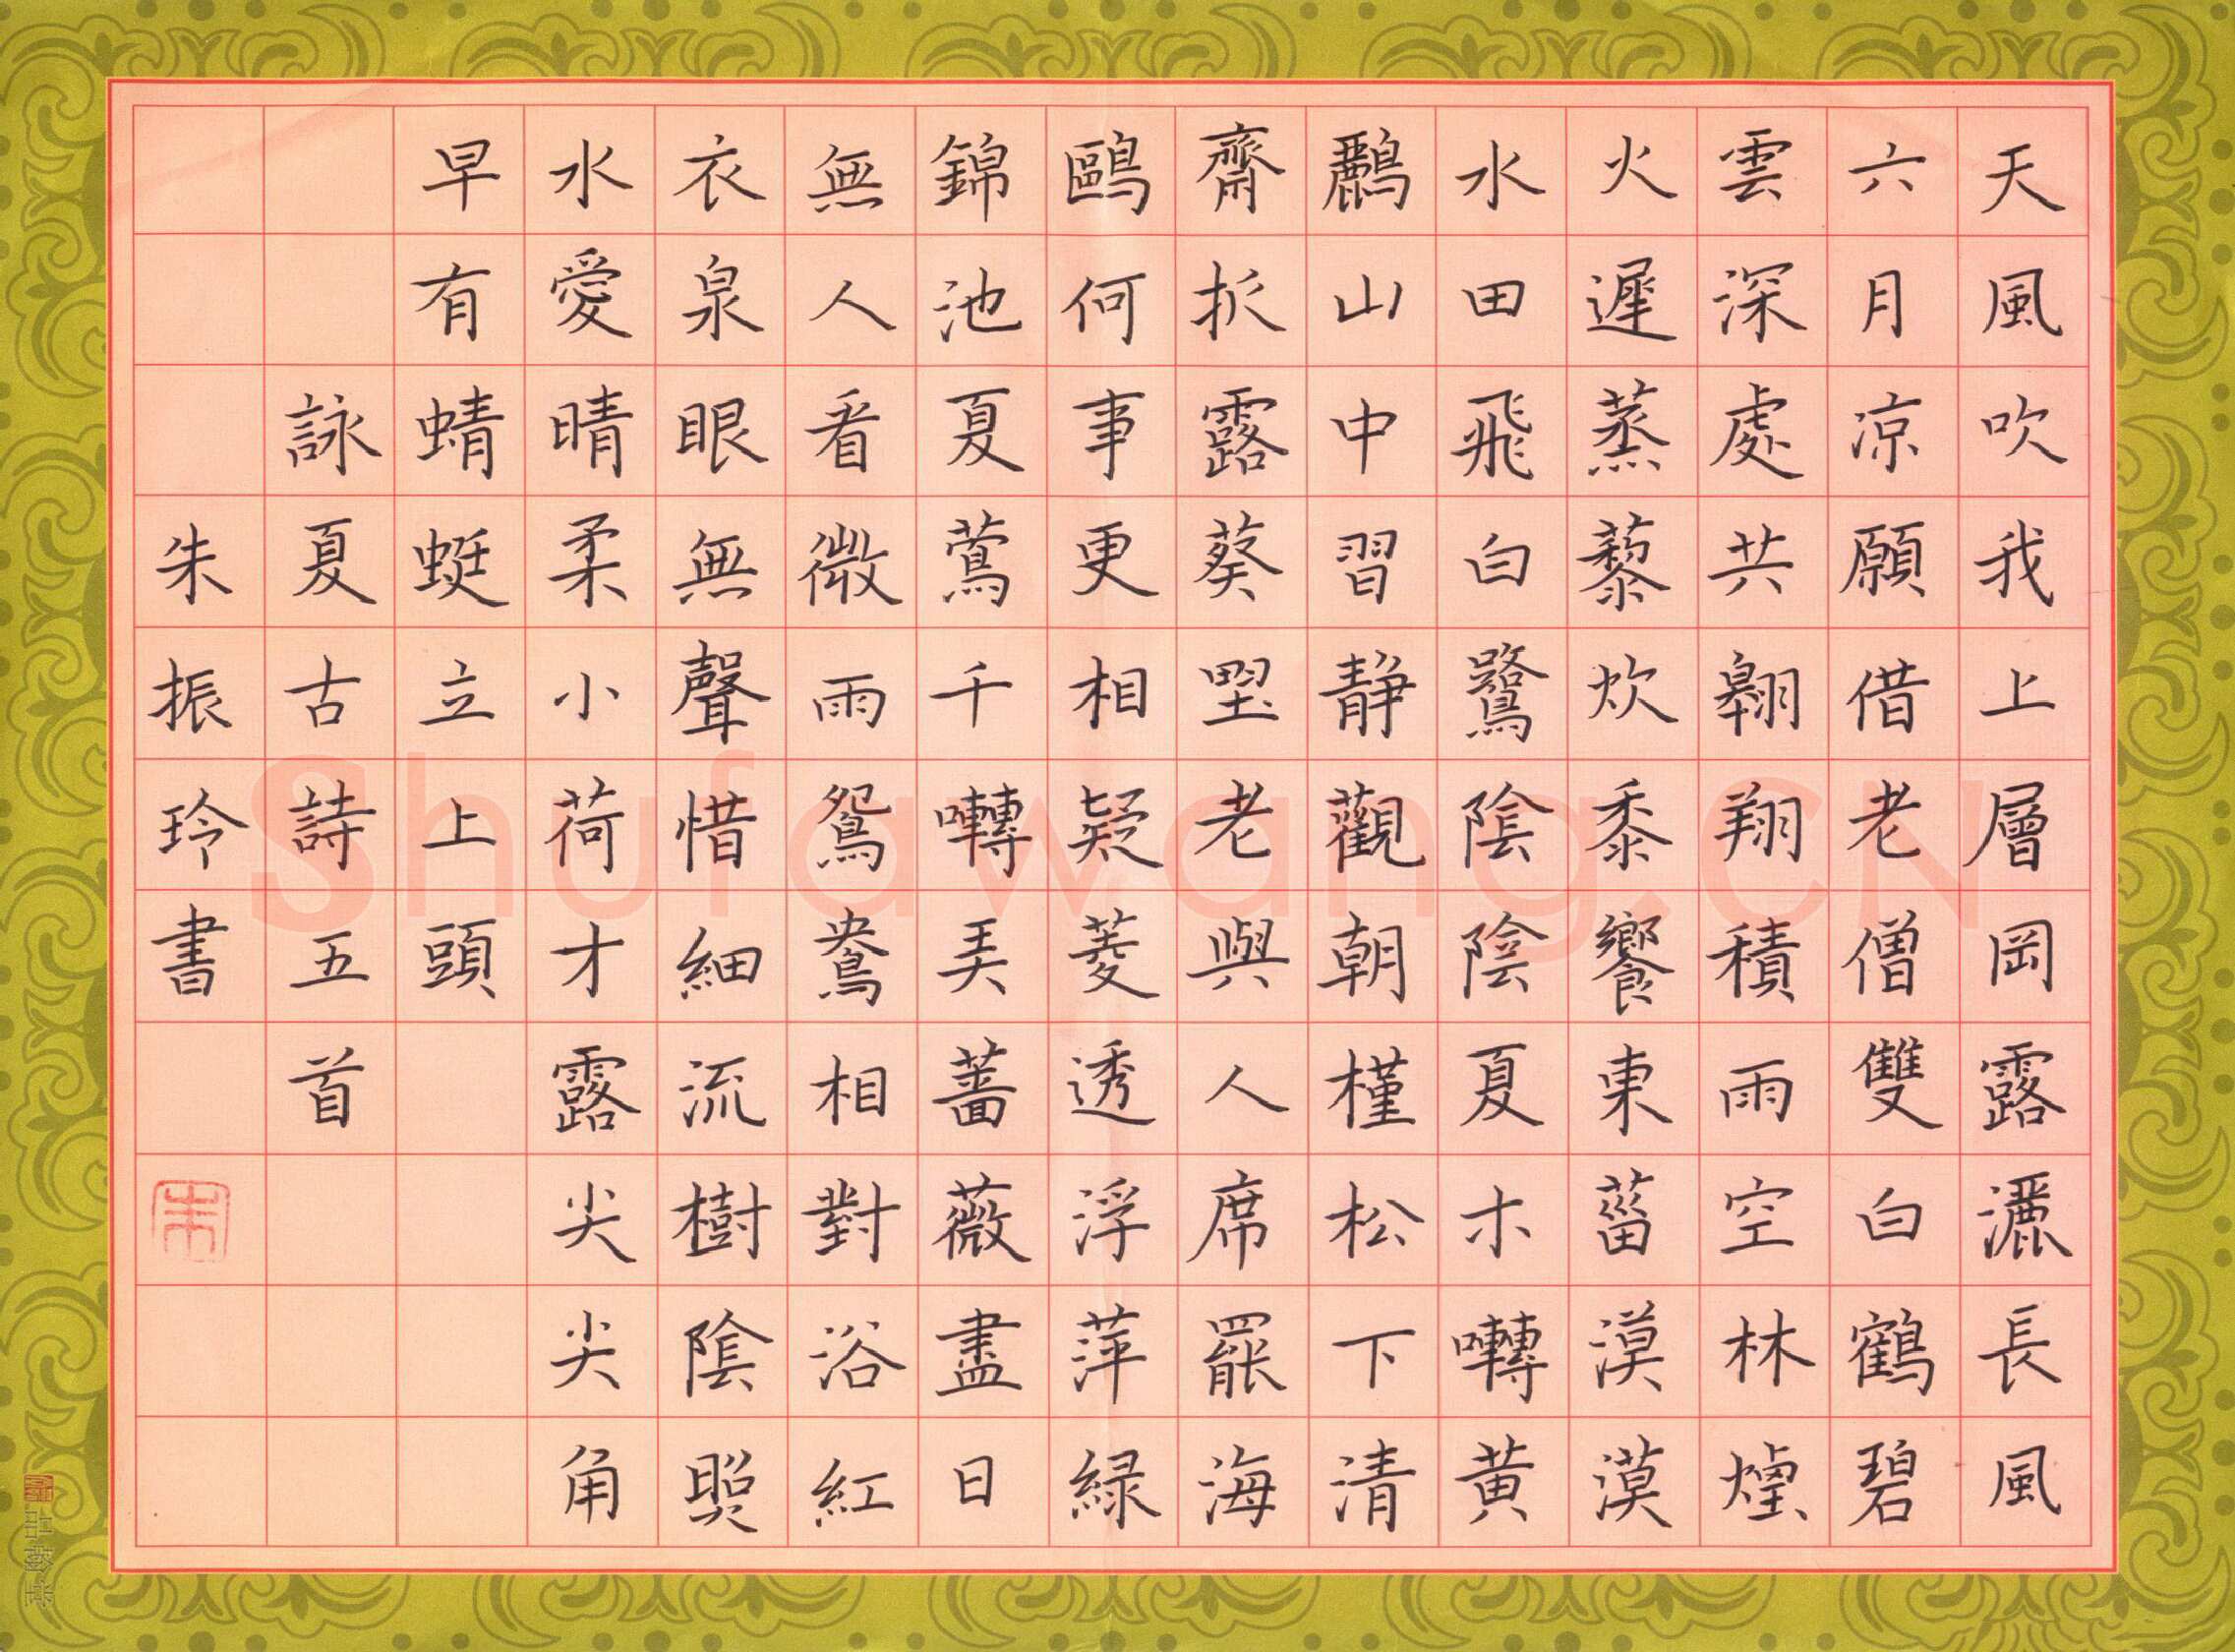 天風吹我上層岡露灑長風
六月凉願借老僧雙白鶴碧
雲深處共翱翔積雨空林煙
火遲蒸藜炊黍饗東菑漠漠
水田飛白鷺陰陰夏木囀黃
鸝山中習静觀朝槿松下清
齋折露葵野老與人席罷海
鷗何事更相疑菱透浮萍緑
錦池夏鶯千囀弄薔薇盡日
無人看微雨鴛鴦相對浴紅
衣泉眼無聲惜細流樹陰照
水愛晴柔小荷才露尖尖角
早有蜻蜓立上頭
詠夏古詩五首
朱振玲書
朱
Shufawang.CN
品翰堂